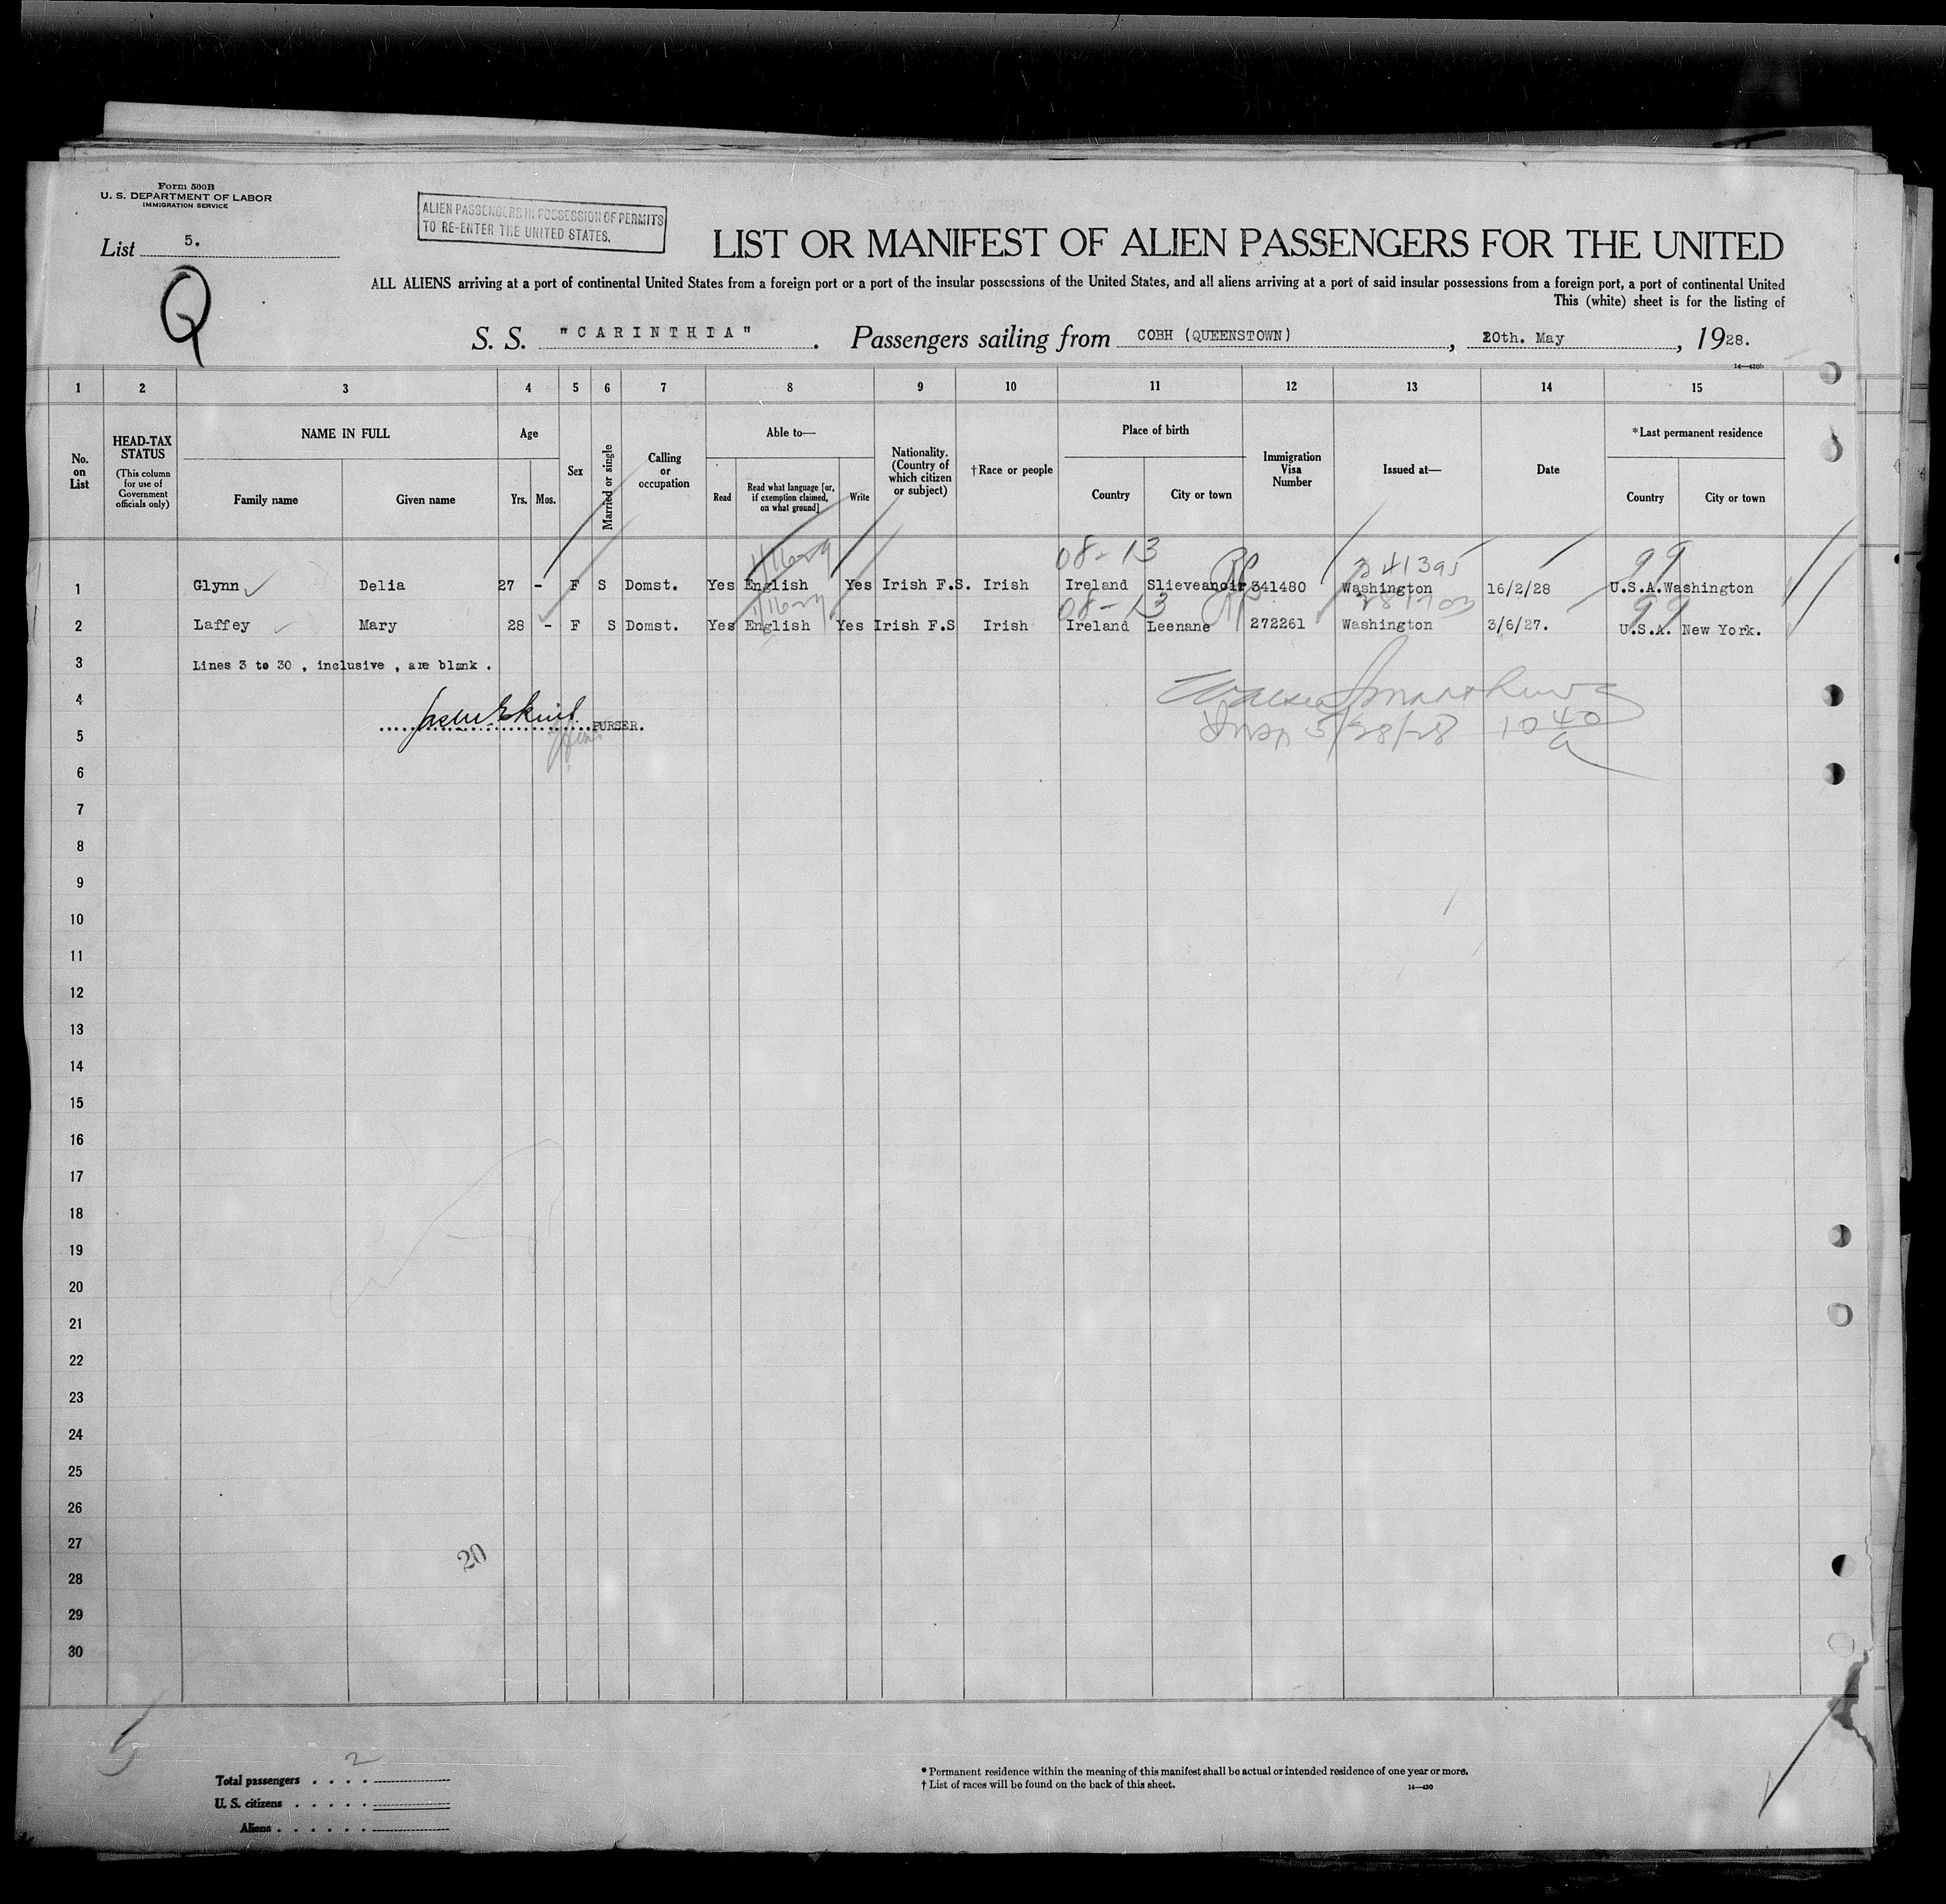 Form 500B
U. S. DEPARTMENT OF LABOR
IMMIGRATION SERVICE
ALIEN PASSENGERS IN POSSESSION OF PERMITS
TO RE-ENTER THE UNITED STATES.
List 5.
Q
LIST OR MANIFEST OF ALIEN PASSENGERS FOR THE UNITED
ALL ALIENS arriving at a port of continental United States from a foreign port or a port of the insular possessions of the United States, and all aliens arriving at a port of said insular possessions from a foreign port, a port of continental United
This (white) sheet is for the listing of
S. S. "CARINTHIA". Passengers sailing from COBH (QUEENSTOWN), 20th. May, 1928.
14—430b
1 2 3 4 5 6 7 8 9 10 11 12 13 14 15
No. on List
HEAD-TAX STATUS (This column for use of Government officials only)
NAME IN FULL Family name Given name
Age Yrs. Mos.
Sex
Married or single
Calling or occupation
Able to— Read Read what language [or, if exemption claimed, on what ground] Write
Nationality. (Country of which citizen or subject)
†Race or people
Place of birth Country City or town
Immigration Visa Number
Issued at—
Date
*Last permanent residence Country City or town
08-13 341395 99
1 Glynn Delia 27 - F S Domst. Yes English Yes Irish F.S. Irish Ireland Slieveanoir 341480 Washington 16/2/28 U.S.A. Washington
08-13 99
2 Laffey Mary 28 - F S Domst. Yes English Yes Irish F.S Irish Ireland Leenane 272261 Washington 3/6/27. U.S.A. New York.
3 Lines 3 to 30 , inclusive , are blank .
4
PURSER.
5 Insp 5/28/28 10 40 a
6
7
8
9
10
11
12
13
14
15
16
17
18
19
20
21
22
23
24
25
26
27
20
28
29
30
Total passengers . . . . 2
U. S. citizens . . . . .
Aliens . . . . . .
* Permanent residence within the meaning of this manifest shall be actual or intended residence of one year or more.
† List of races will be found on the back of this sheet.
14—430